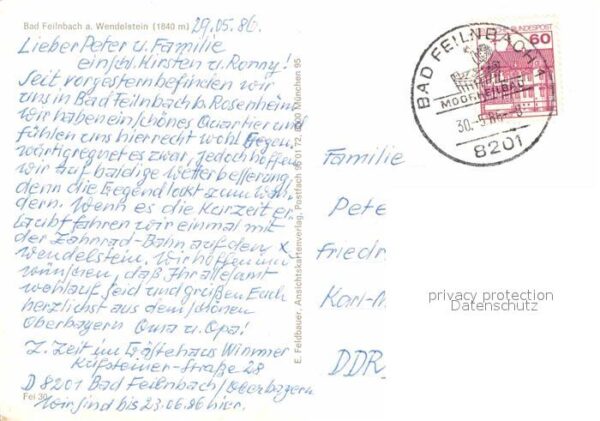 Bad Feilnbach a. Wendelstein (1840 m) 29.05.86.
Lieber Peter u. Familie
einschl. Kirsten u. Ronny!
Seit vorgestern befinden wir
uns in Bad Feilnbach b. Rosenheim
Wir haben ein schönes Quartier und
fühlen uns hier recht wohl. Gegen
wärtig regnet es zwar, jedoch hoffen
wir auf baldige Wetterbesserung,
denn die Gegend lockt zum Wan,
dern. Wenn es die Kurzeit er,
laubt fahren wir einmal mit
der Zahnrad-Bahn auf den x
Wendelstein. Wir hoffen und
wünschen, daß Ihr allesamt
wohlauf seid und grüßen Euch
herzlichst aus dem schönen
Oberbayern Oma u. Opa!
Z. Zeit im Gästehaus Wimmer
Kufsteiner-Straße 28
D 8201 Bad Feilnbach/Oberbayern
Fel 30
Wir sind bis 23.06.86 hier.
E. Feldbauer, Ansichtskartenverlag, Postfach 95 01 72, 8000 München 95
BUNDESPOST
60
BAD FEILNBACH 1
MOORHEILBAD
30.-5.86.-8
8201
Familie
Pete
Friedr
Karl-M
privacy protection
Datenschutz
DDR